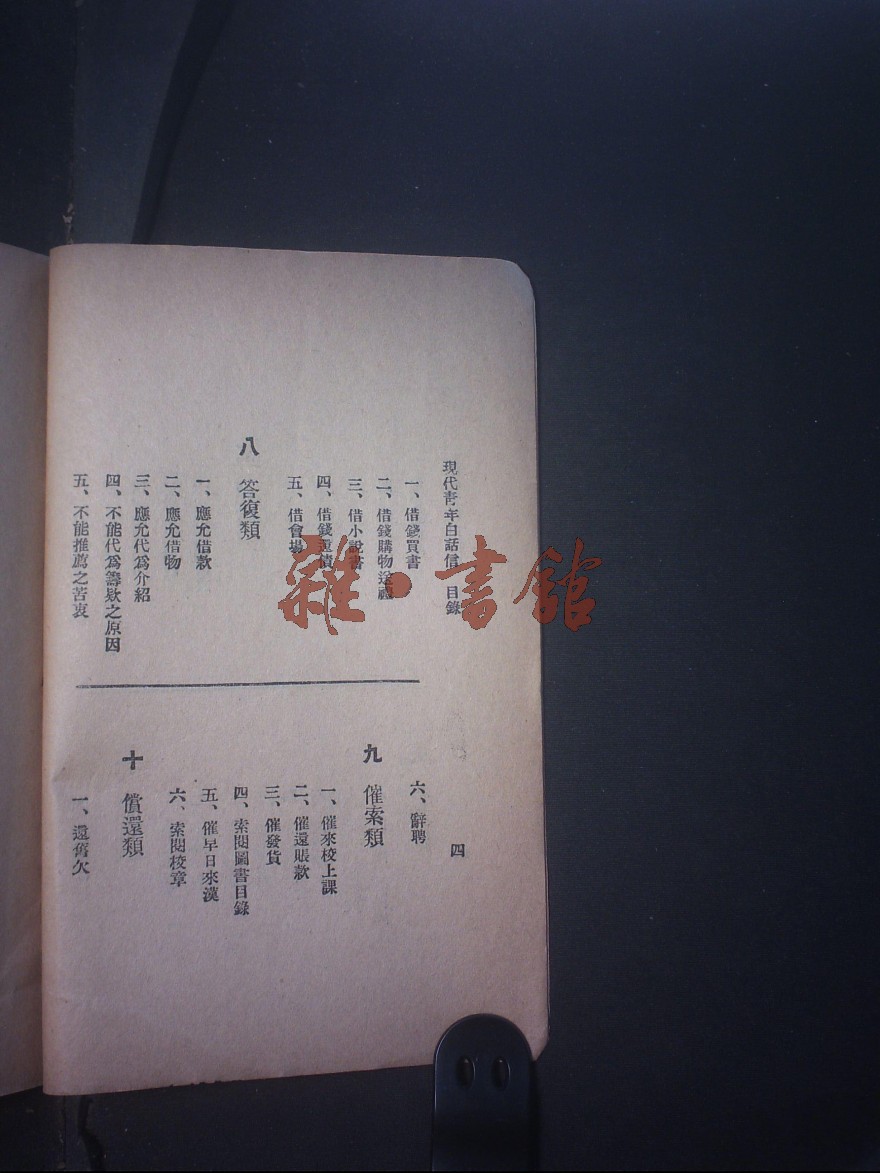 現代青年白話信 目錄
四
一、借錢買書
二、借錢購物送禮
三、借小說書
四、借錢還債
五、借會場
八 答復類
一、應允借款
二、應允借物
三、應允代爲介紹
四、不能代爲籌欵之原因
五、不能推薦之苦衷
六、辭聘
九 催索類
一、催來校上課
二、催還賬款
三、催發貨
四、索閱圖書目錄
五、催早日來漢
六、索閱校章
十 償還類
一、還舊欠
雜·書館